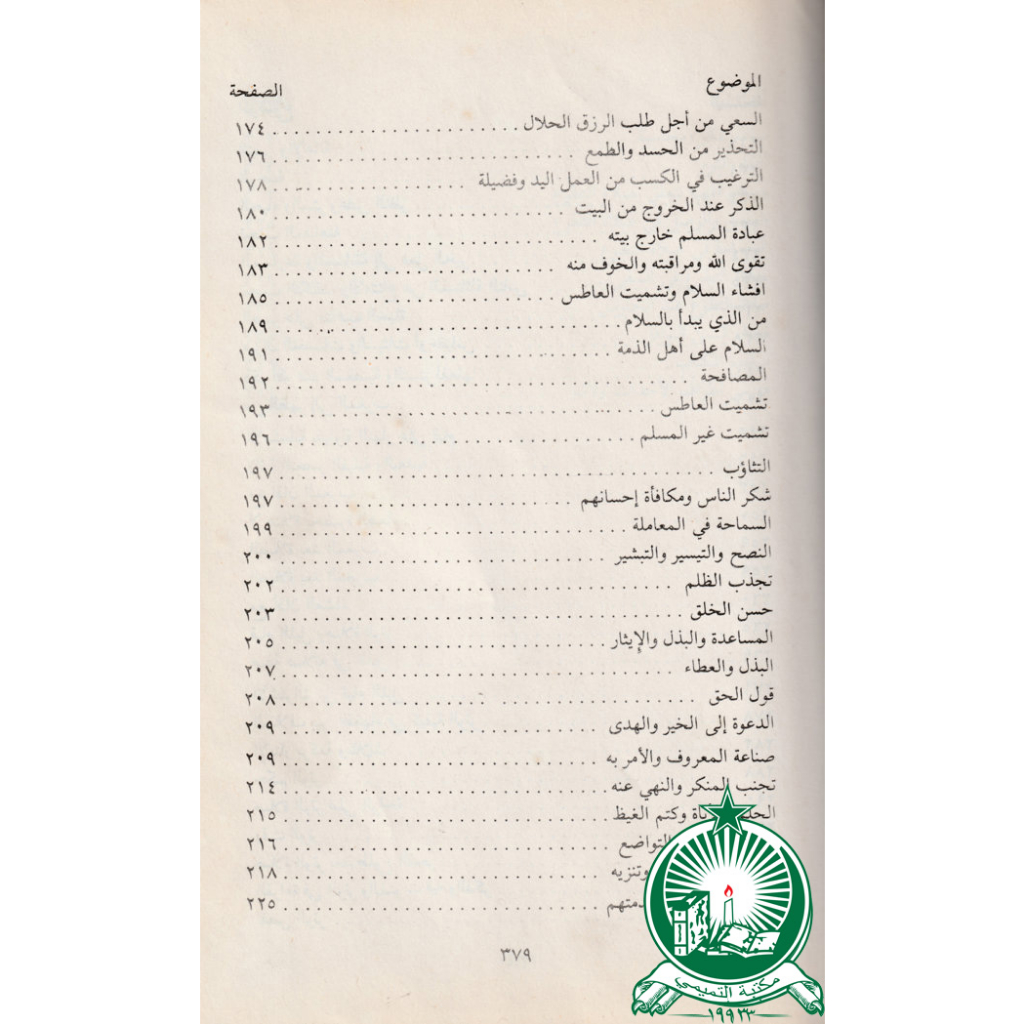 الموضوع الصفحة
السعي من أجل طلب الرزق الحلال ١٧٤
التحذير من الحسد والطمع ١٧٦
الترغيب في الكسب من العمل اليد وفضيلة ١٧٨
الذكر عند الخروج من البيت ١٨٠
عبادة المسلم خارج بيته ١٨٢
تقوى الله ومراقبته والخوف منه ١٨٣
افشاء السلام وتشميت العاطس ١٨٥
من الذي يبدأ بالسلام ١٨٩
السلام على أهل الذمة ١٩١
المصافحة ١٩٢
تشميت العاطس ١٩٣
تشميت غير المسلم ١٩٦
التثاؤب ١٩٧
شكر الناس ومكافأة إحسانهم ١٩٧
السماحة في المعاملة ١٩٩
النصح والتيسير والتبشير ٢٠٠
تجذب الظلم ٢٠٢
حسن الخلق ٢٠٣
المساعدة والبذل والإيثار ٢٠٥
البذل والعطاء ٢٠٧
قول الحق ٢٠٨
الدعوة إلى الخير والهدى ٢٠٩
صناعة المعروف والأمر به ٢٠٩
تجنب المنكر والنهي عنه ٢١٤
وكتم الغيظ ٢١٥
التواضع ٢١٦
وتنزيه ٢١٨
٢٢٥
٣٧٩
مكتبة التميمي
١٩٩٣٣